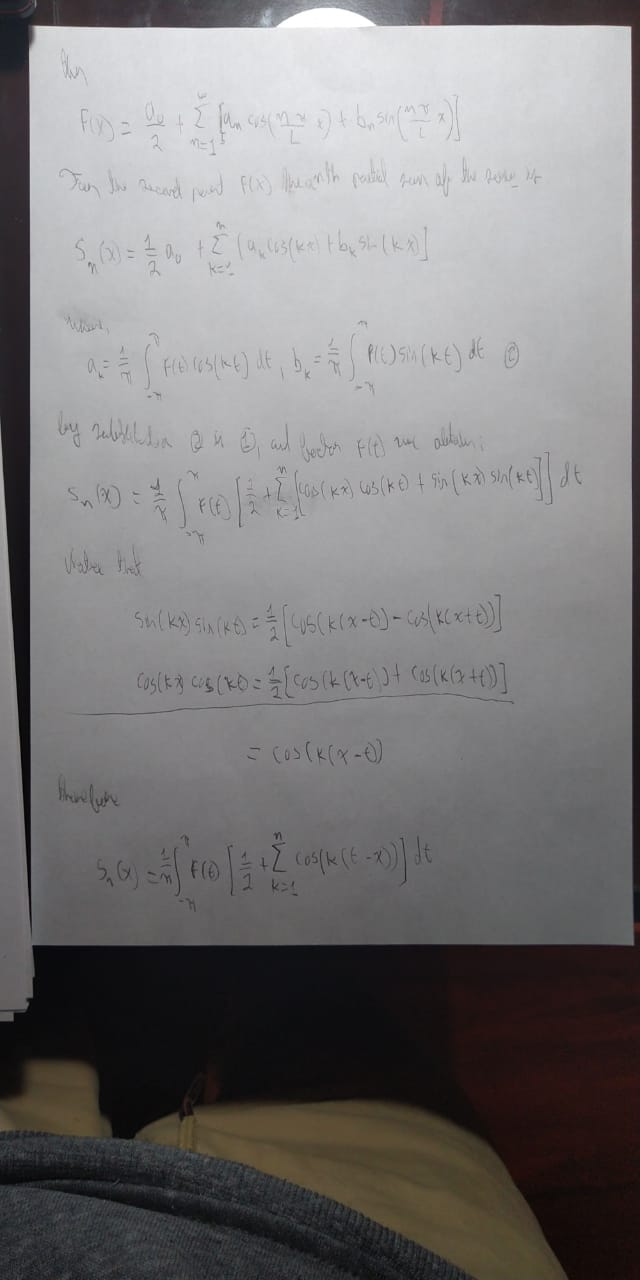 then
F(x) = a₀/2 + Σ_{n=1}^{∞} [aₙ cos(nπ/L x) + bₙ sin(nπ/L x)]
the second period F(x) the nth partial sum of the series is
Sₙ(x) = 1/2 a₀ + Σ_{k=1}^{n} (aₖ cos(kx) + bₖ sin(kx)]
aₖ = 1/π ∫_{-π}^{π} F(t) cos(kt) dt, bₖ = 1/π ∫_{-π}^{π} F(t) sin(kt) dt ②
by ② in ①, and factor F(t) we obtain:
Sₙ(x) = 1/π ∫_{-π}^{π} F(t) [1/2 + Σ_{k=1}^{n} [cos(kx) cos(kt) + sin(kx) sin(kt)]] dt
Notice that
sin(kx) sin(kt) = 1/2 [cos(k(x-t)) - cos(k(x+t))]
cos(kx) cos(kt) = 1/2 [cos(k(x-t)) + cos(k(x+t))]
= cos(k(x-t))
therefore
Sₙ(x) = 1/π ∫_{-π}^{π} F(t) [1/2 + Σ_{k=1}^{n} cos(k(t-x))] dt